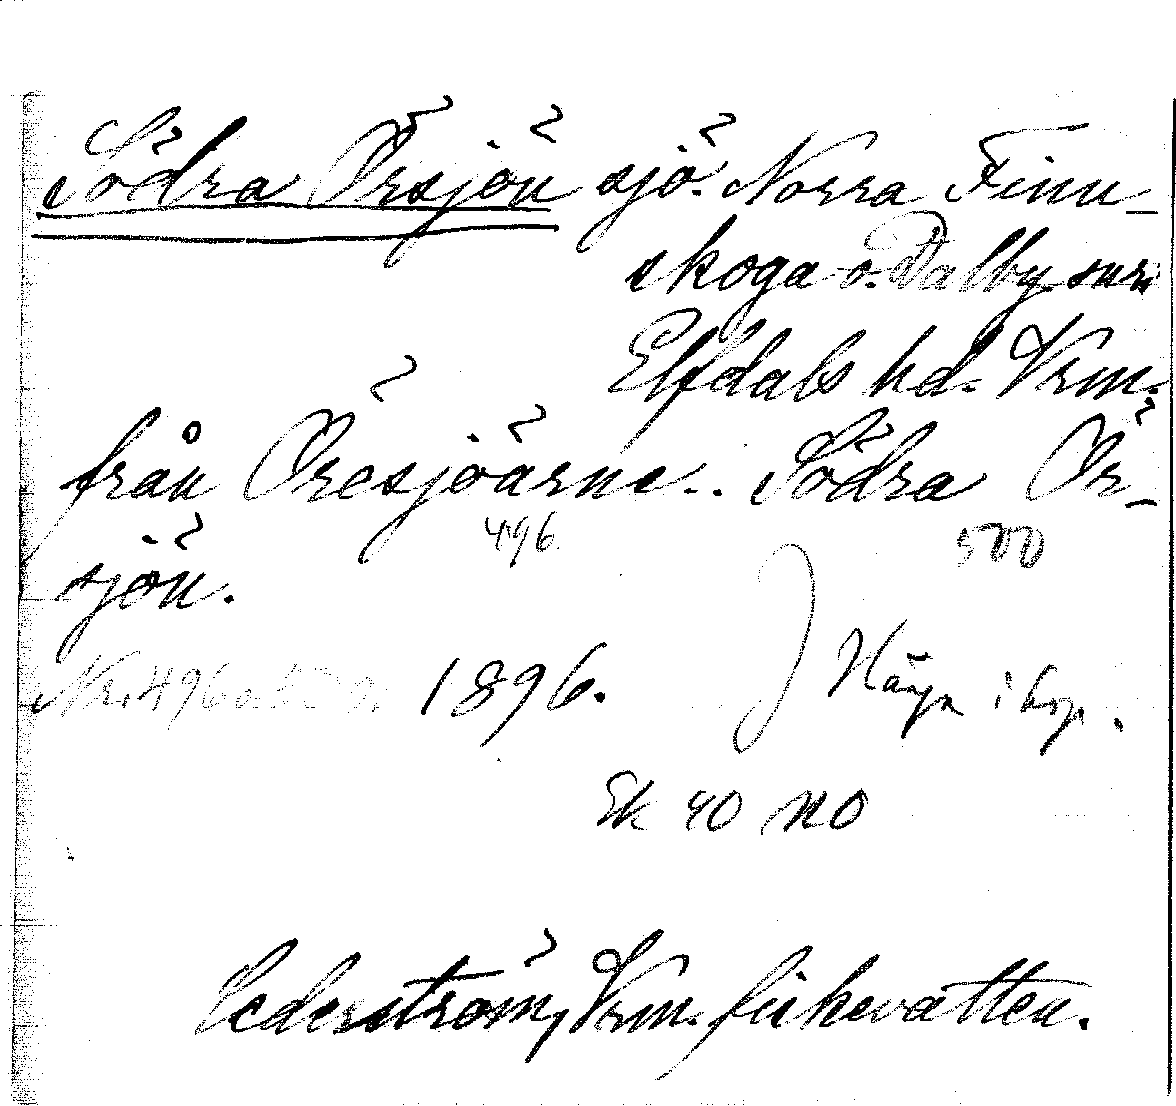 Södra Örsjön sjö. Norra Finn-
skoga o. Dalby snr
Elfdals hd. Vrm.
från Öresjöarne.. Södra Ör-
sjön.
496. 500
Nr. 496 1896.
Ek 40 NO
Cederström, Vrm. fiskevatten.